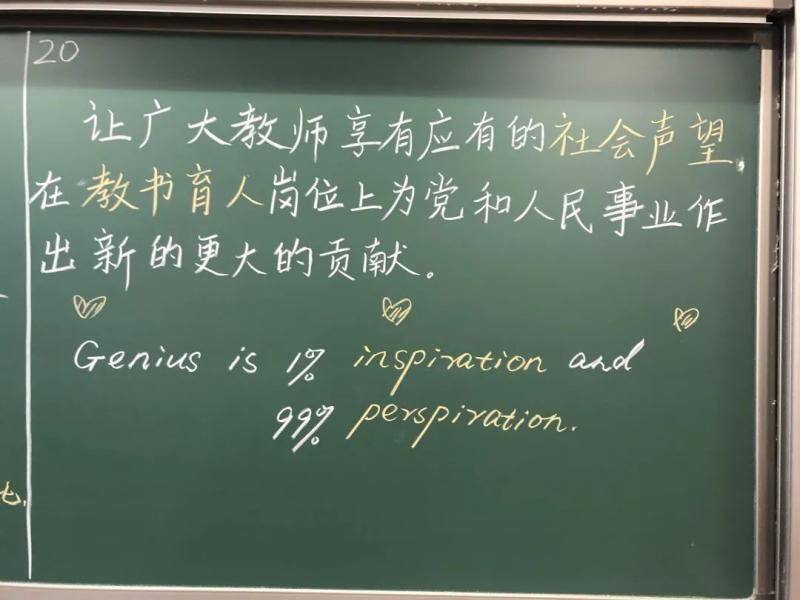 20
让广大教师享有应有的社会声望,
在教书育人岗位上为党和人民事业作
出新的更大的贡献。
Genius is 1% inspiration and
99% perspiration.